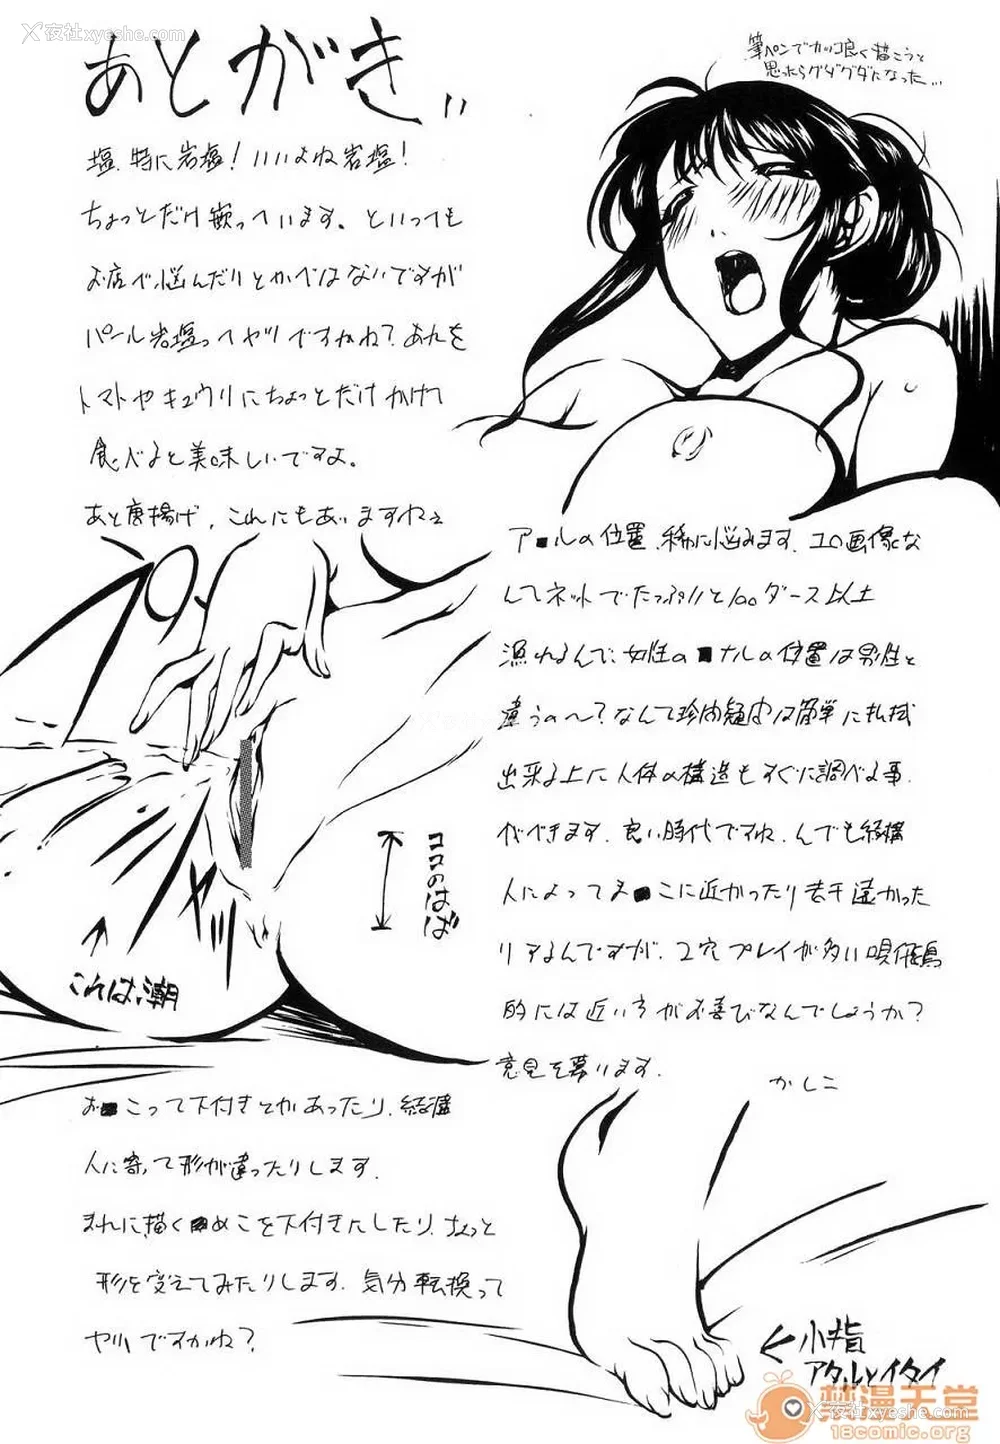 夜社xyeshe.com
あとがき
筆ペンでカッコ良く描こうと
思ったらグダグダになった…
塩、特に岩塩！いいよね岩塩！
ちょっとだけ嵌っています。といっても
お店で悩んだりとかではないですが
パール岩塩ってヤツですかね？あれを
トマトやキュウリにちょっとだけかけて
食べると美味しいですよ。
あと唐揚げ、これにもあいますねぇ
ア■ルの位置、稀に悩みます、エロ画像な
んてネットでたっぷりと100ダース以上
漁れるんで、女性の■ナルの位置は男性と
違うの〜？なんて珍内疑惑は簡単に払拭
出来る上に人体の構造もすぐに調べる事
ができます、良い時代ですね、んでも結構
人によってま■こに近かったり若干遠かった
リアるんですが、2穴プレイが多い唄飛鳥
的には近い方がお喜びなんでしょうか？
意見を募ります、
かしこ
ココのはば
ヤッ
これは潮
お■こって下付きとかあったり、結構
人に寄って形が違ったりします、
まれに描く■めこを下付きにしたり、ちょっと
形を変えてみたりします、気分転換って
ヤツですかね？
小指
アタルとイタイ
夜社xyeshe.com
禁漫天堂
18comic.org